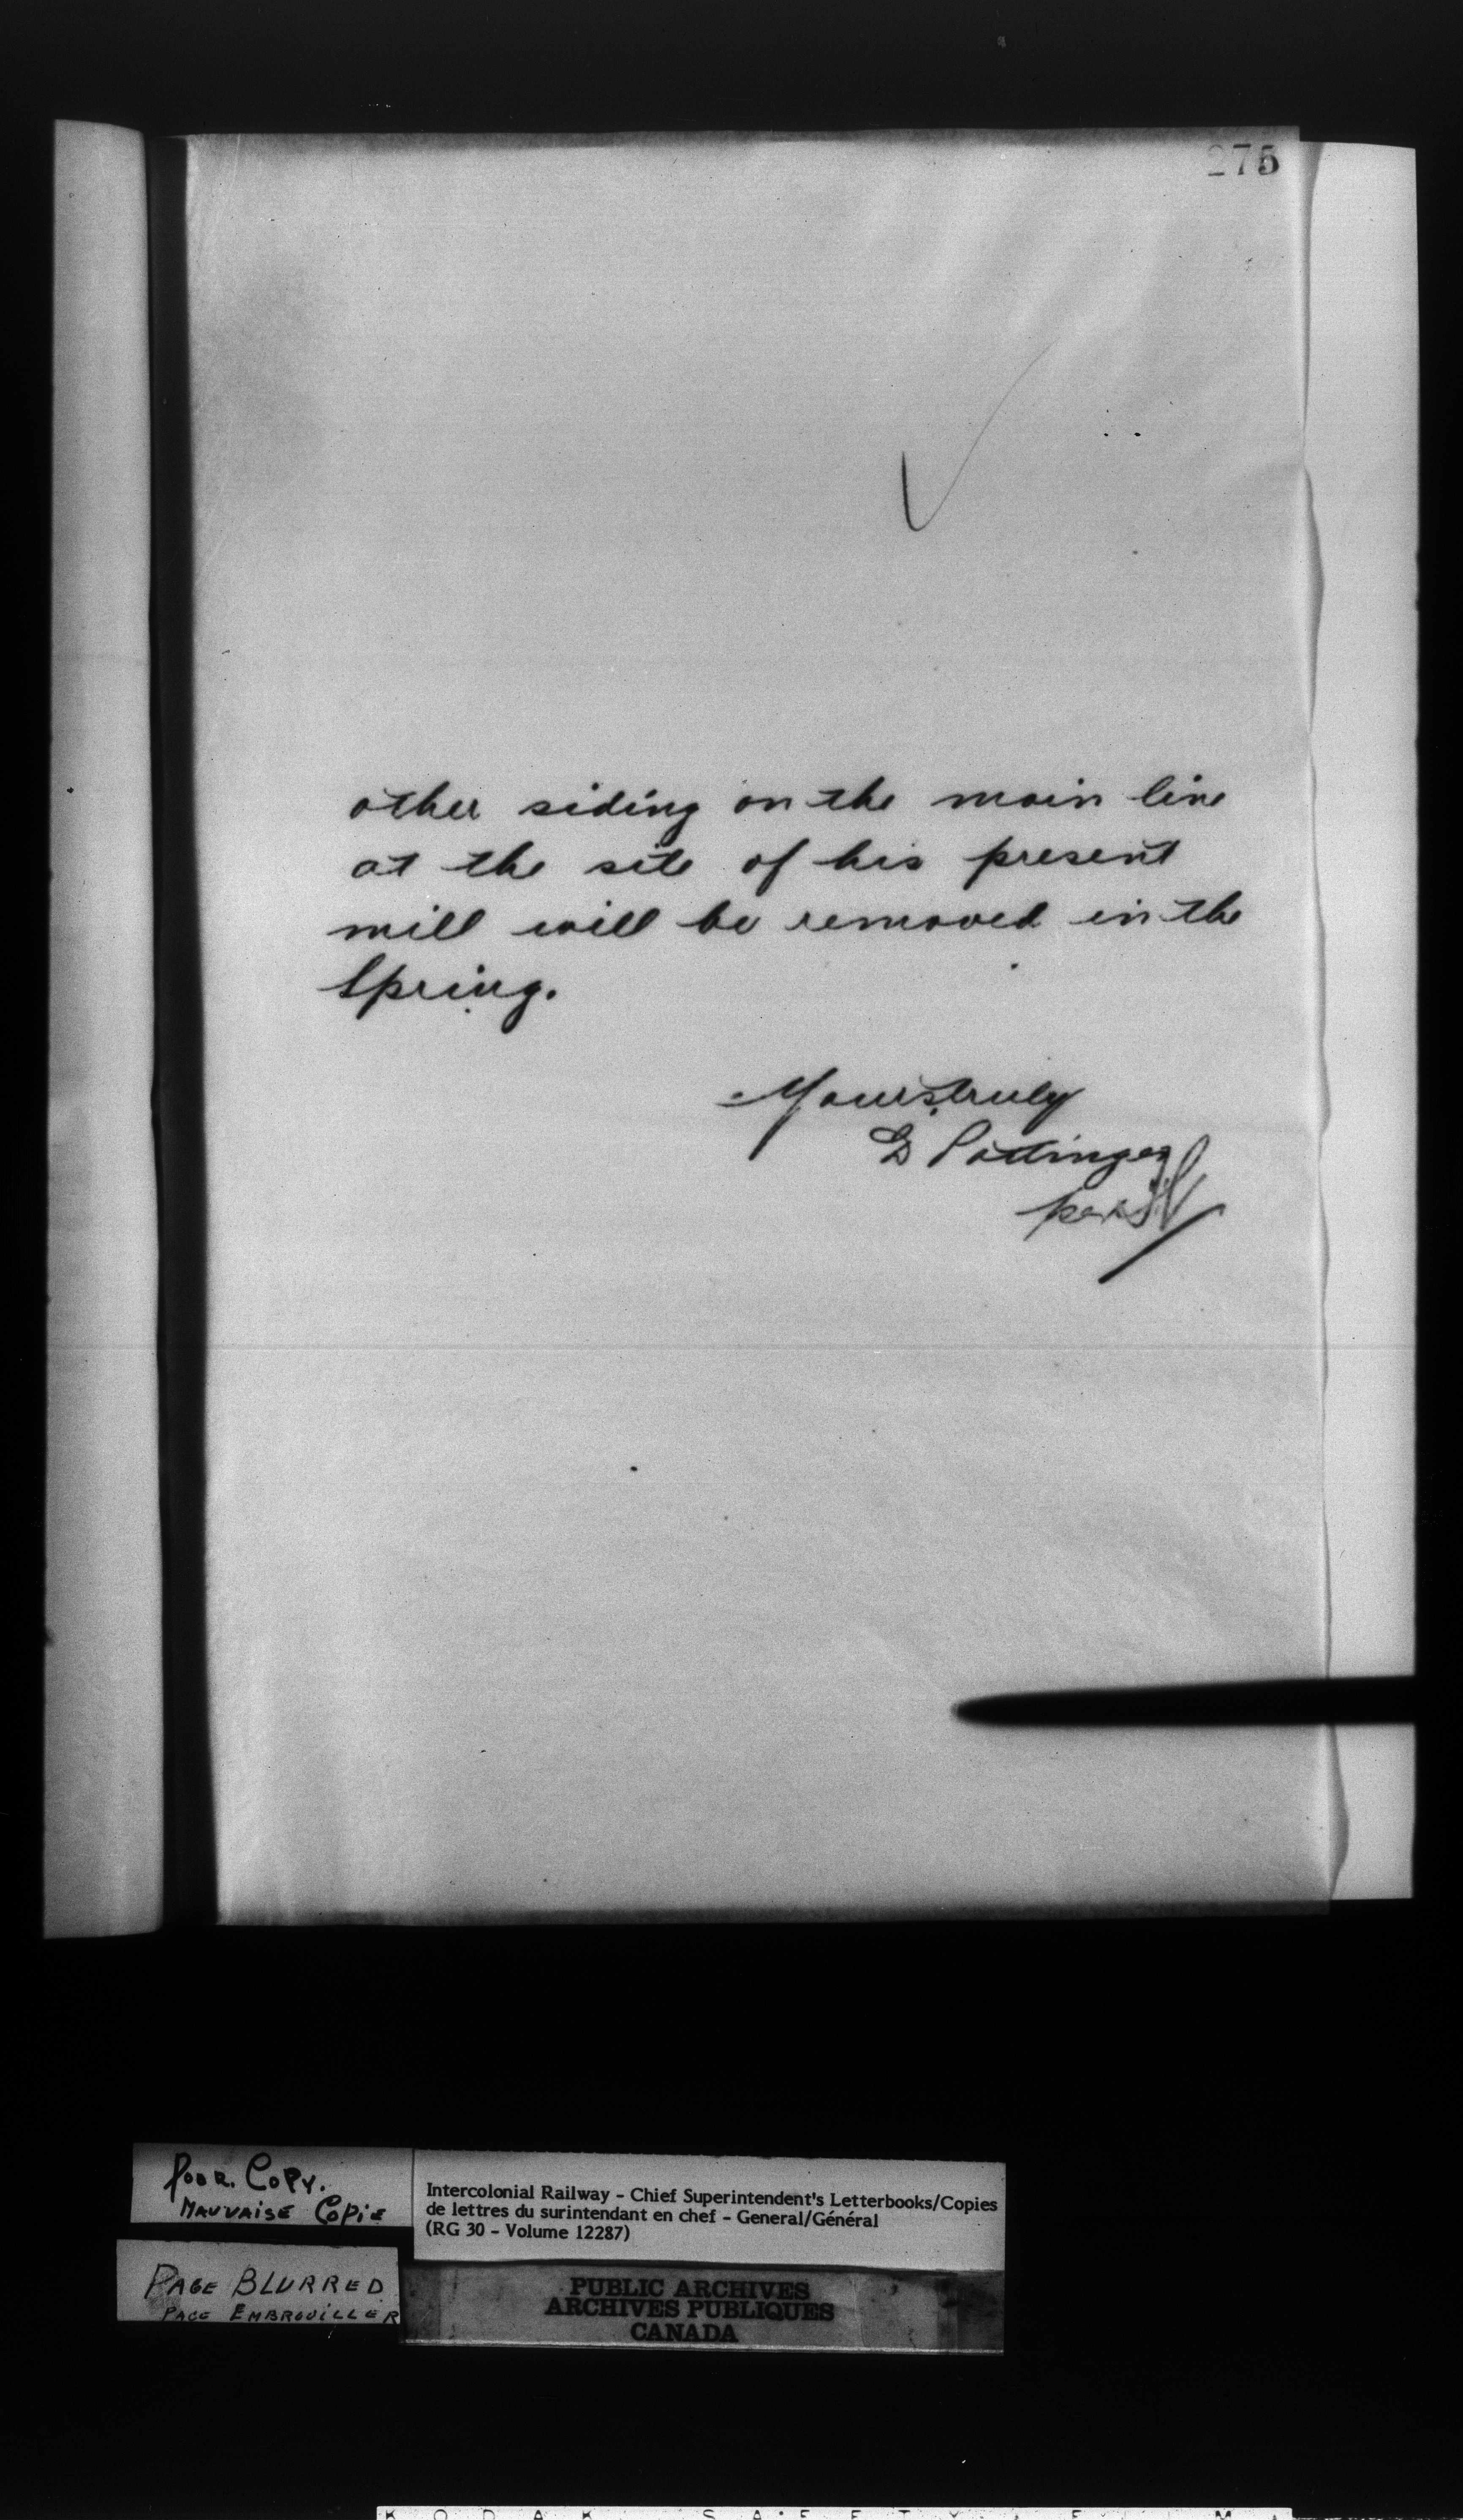 275
other siding on the main line
at the site of his present
mill will be removed in the
Spring.
Yours truly
D Pottinger
per
Poor. Copy.
Mauvaise Copie
Intercolonial Railway - Chief Superintendent's Letterbooks/Copies
de lettres du surintendant en chef - General/Général
(RG 30 - Volume 12287)
Page Blurred
Page Embrouiller
PUBLIC ARCHIVES
ARCHIVES PUBLIQUES
CANADA